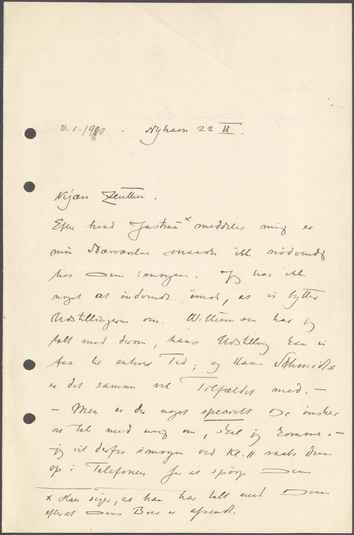 2.1.1900. Nyhavn 22 II.
Kjære Zeuthen.
Efter hvad Justman x meddeler mig er
min Nærværelse ikke nødvendig
hos Dem imorgen. Jeg har ikke
noget at indvende imod, at vi flytter
Udstillingen om. Willumsen har jeg
talt med derom, hans Udstilling kan
til enhver Tid, og Hans Schmidt
er det samme ved Tilfældet med. —
— Men er der noget specielt De ønsker
at tale med mig om, skal jeg komme. —
jeg vil derfor imorgen ved Kl. 11 ringe Dem
op i Telefonen for at spørge Dem
x Han siger, at han har talt med Dem
efter at Deres Brev er afsendt.